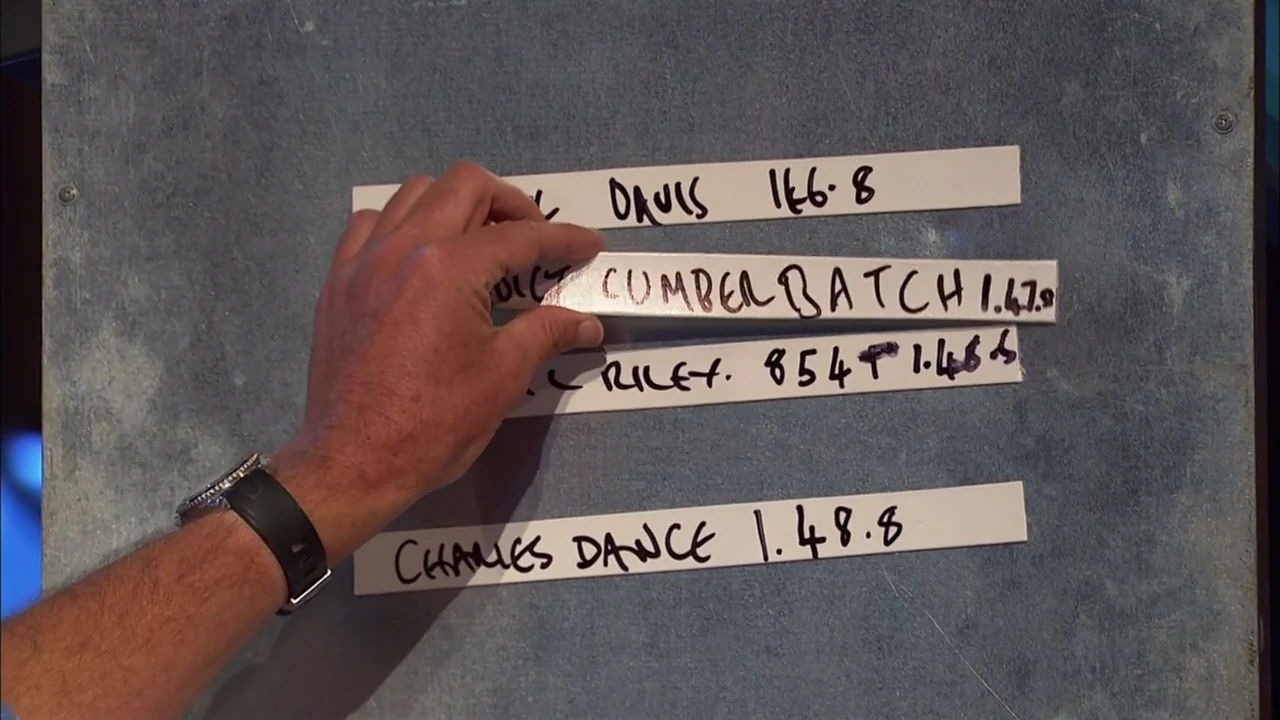 DAVIS 146.8
CUMBERBATCH 1.47.8
RILEY. 854
CHARLES DANCE 1.48.8